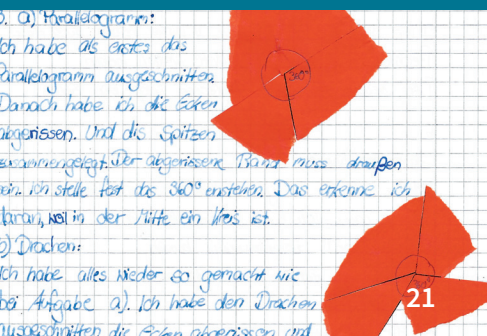 3. a) Parallelogramm:
Ich habe als erstes das
Parallelogramm ausgeschnitten.
Danach habe ich die Ecken
abgerissen. Und die Spitzen
zusammengelegt. Der abgerissene Rand muss draußen
sein. Ich stelle fest das 360° enstehen. Das erkenne ich
daran, weil in der Mitte ein Kreis ist.
b) Drachen:
Ich habe alles wieder so gemacht wie
bei Aufgabe a). Ich habe den Drachen
ausgeschnitten die Ecken abgerissen und
360°
21